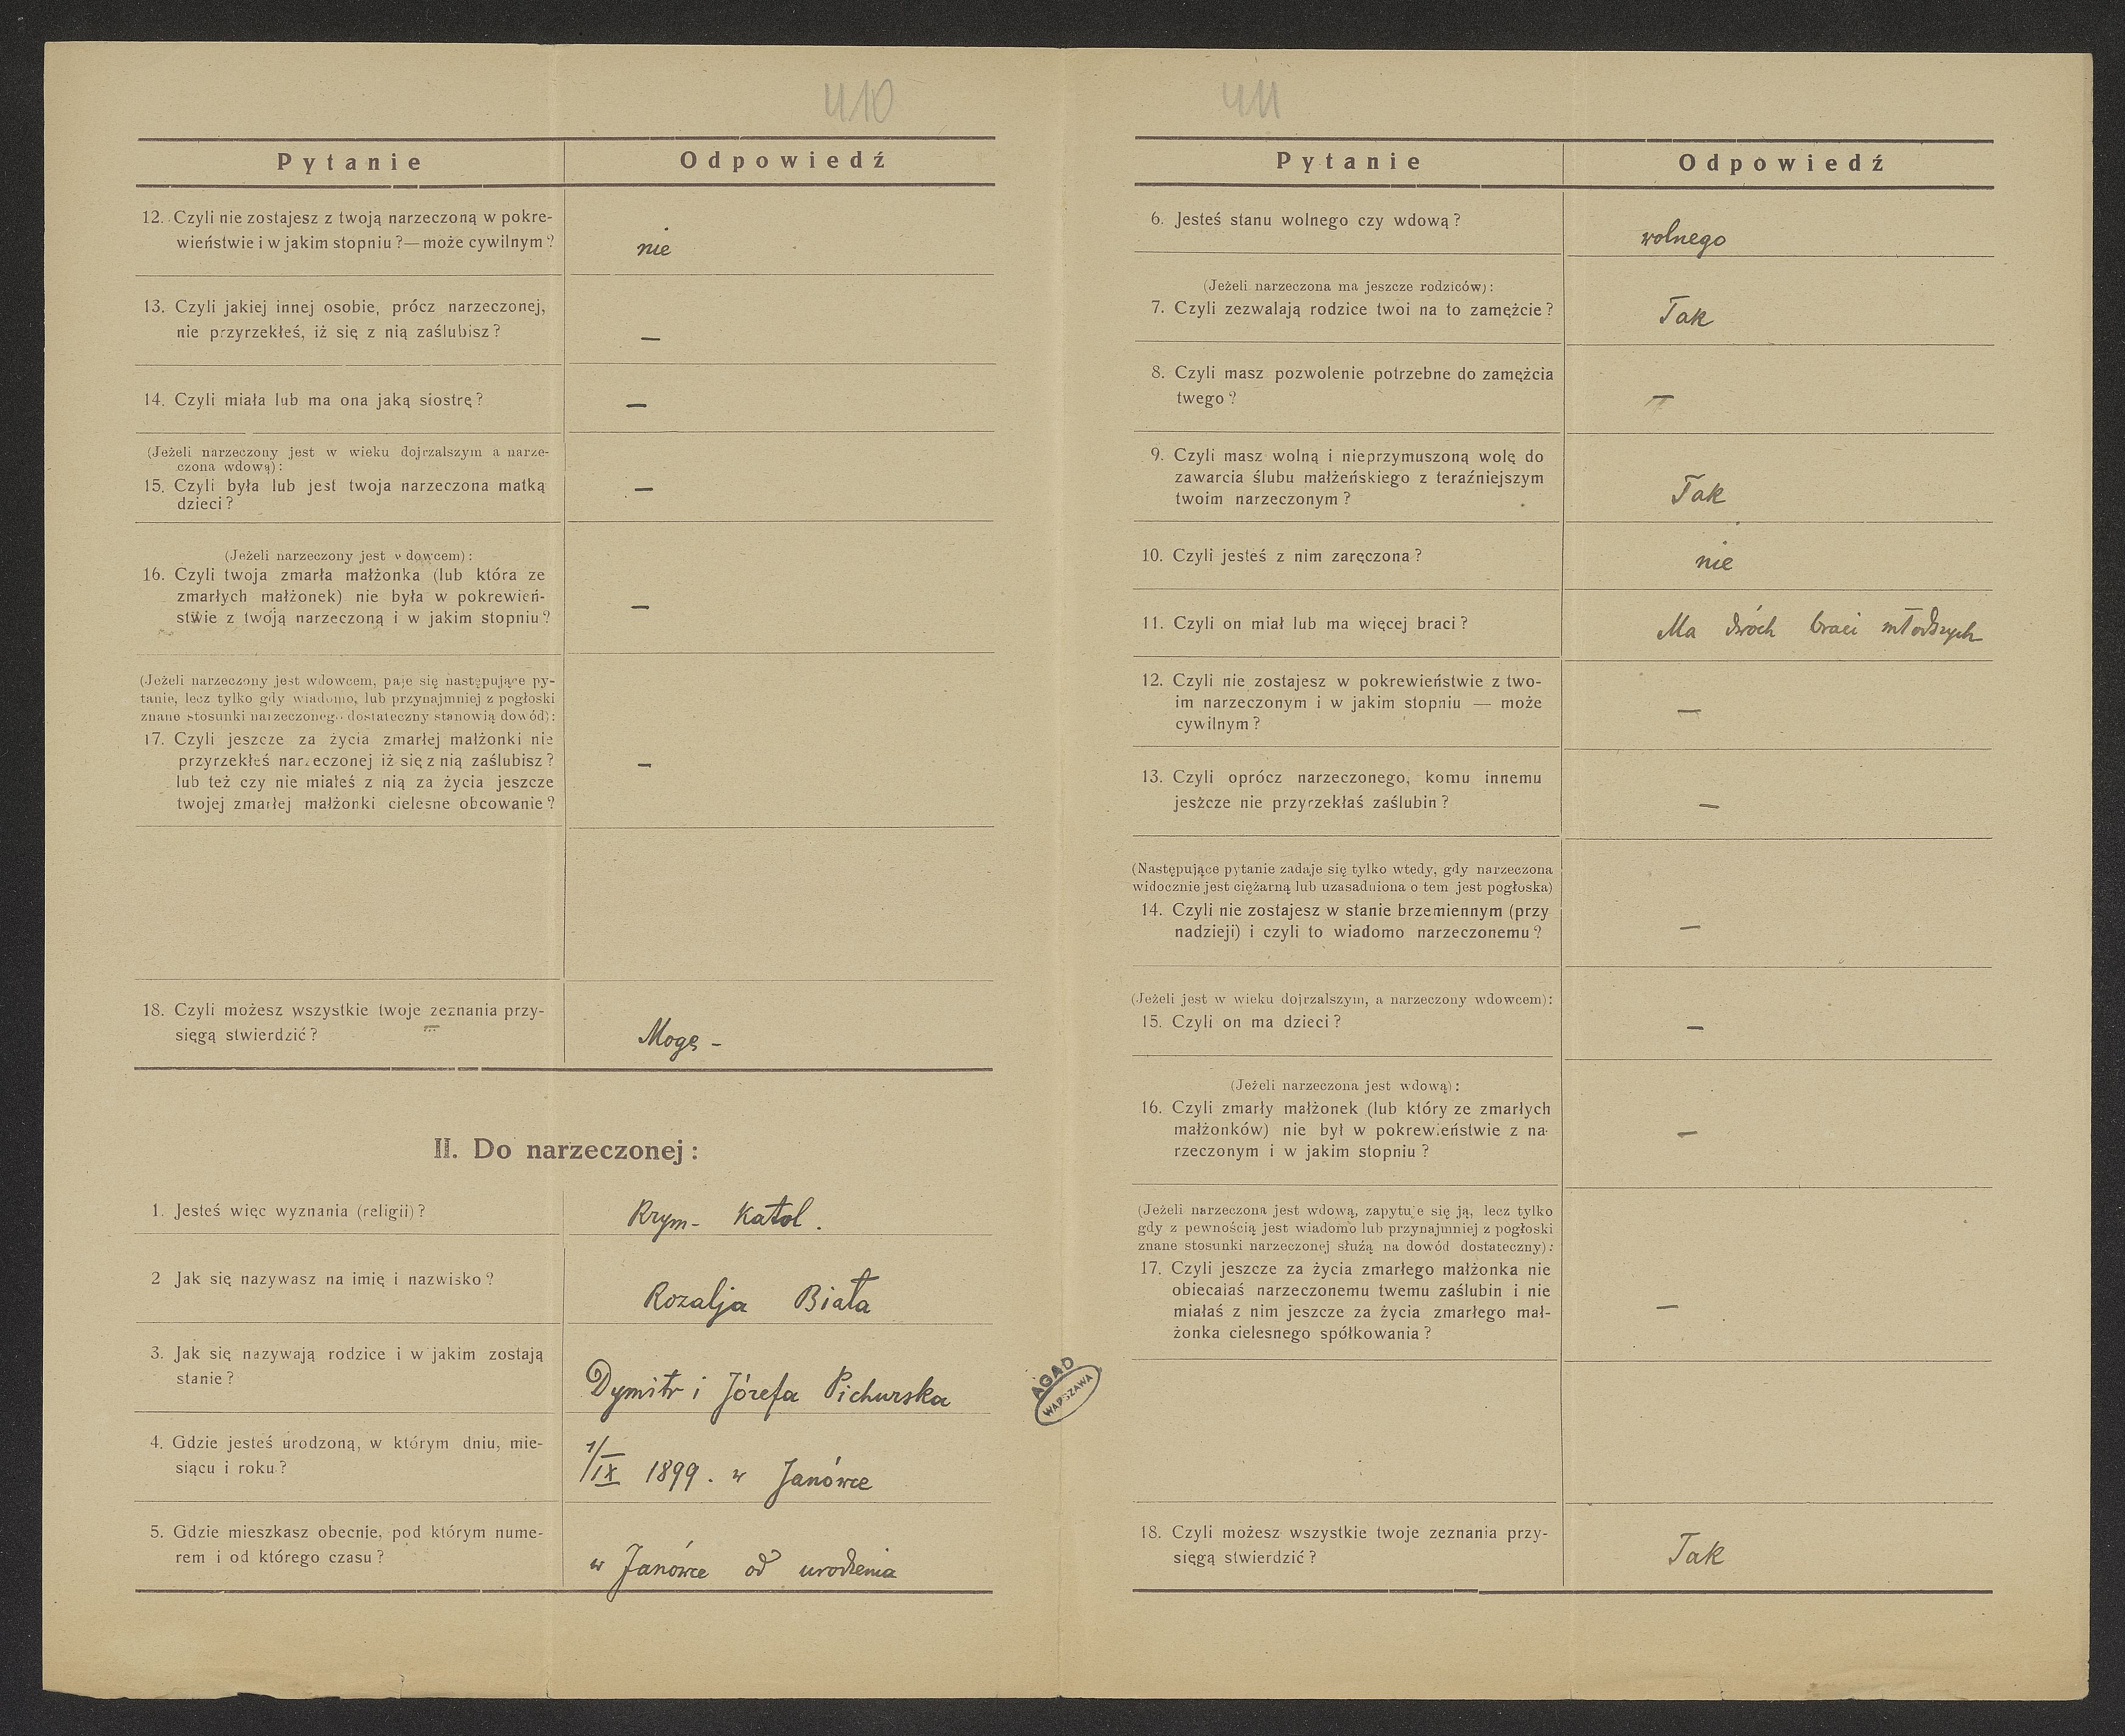 410
Pytanie
Odpowiedź
12. Czyli nie zostajesz z twoją narzeczoną w pokre-
wieństwie i w jakim stopniu?—może cywilnym?
nie
13. Czyli jakiej innej osobie, prócz narzeczonej,
nie przyrzekłeś, iż się z nią zaślubisz?
—
14. Czyli miała lub ma ona jaką siostrę?
—
(Jeżeli narzeczony jest w wieku dojrzalszym a narze-
czona wdową):
15. Czyli była lub jest twoja narzeczona matką
dzieci?
—
(Jeżeli narzeczony jest wdowcem):
16. Czyli twoja zmarła małżonka (lub która ze
zmarłych małżonek) nie była w pokrewień-
stwie z twoją narzeczoną i w jakim stopniu?
—
(Jeżeli narzeczony jest wdowcem, daje się następujące py-
tanie, lecz tylko gdy wiadomo, lub przynajmniej z pogłoski
znane stosunki narzeczonego dostateczny stanowią dowód):
17. Czyli jeszcze za życia zmarłej małżonki nie
przyrzekłeś narzeczonej iż się z nią zaślubisz?
lub też czy nie miałeś z nią za życia jeszcze
twojej zmarłej małżonki cielesne obcowanie?
—
18. Czyli możesz wszystkie twoje zeznania przy-
sięgą stwierdzić?
Mogę –
II. Do narzeczonej:
1. Jesteś więc wyznania (religii)?
Rzym- Katol.
2 Jak się nazywasz na imię i nazwisko?
Rozalja Biała
3. Jak się nazywają rodzice i w jakim zostają
stanie?
Dymitr i Józefa Pichurska
4. Gdzie jesteś urodzoną, w którym dniu, mie-
siącu i roku?
1/IX 1899. w Janówce
5. Gdzie mieszkasz obecnie, pod którym nume-
rem i od którego czasu?
w Janówce od urodzenia
AGAD
WARSZAWA
411
Pytanie
Odpowiedź
6. Jesteś stanu wolnego czy wdową?
wolnego
(Jeżeli narzeczona ma jeszcze rodziców):
7. Czyli zezwalają rodzice twoi na to zamężcie?
Tak
8. Czyli masz pozwolenie potrzebne do zamężcia
twego?
—
9. Czyli masz wolną i nieprzymuszoną wolę do
zawarcia ślubu małżeńskiego z teraźniejszym
twoim narzeczonym?
Tak
10. Czyli jesteś z nim zaręczona?
nie
11. Czyli on miał lub ma więcej braci?
Ma dwóch braci młodszych
12. Czyli nie zostajesz w pokrewieństwie z two-
im narzeczonym i w jakim stopniu — może
cywilnym?
—
13. Czyli oprócz narzeczonego, komu innemu
jeszcze nie przyrzekłaś zaślubin?
—
(Następujące pytanie zadaje się tylko wtedy, gdy narzeczona
widocznie jest ciężarną lub uzasadniona o tem jest pogłoska)
14. Czyli nie zostajesz w stanie brzemiennym (przy
nadzieji) i czyli to wiadomo narzeczonemu?
—
(Jeżeli jest w wieku dojrzalszym, a narzeczony wdowcem):
15. Czyli on ma dzieci?
—
(Jeżeli narzeczona jest wdową):
16. Czyli zmarły małżonek (lub który ze zmarłych
małżonków) nie był w pokrewieństwie z na-
rzeczonym i w jakim stopniu?
—
(Jeżeli narzeczona jest wdową, zapytuje się ją, lecz tylko
gdy z pewnością jest wiadomo lub przynajmniej z pogłoski
znane stosunki narzeczonej służą na dowód dostateczny):
17. Czyli jeszcze za życia zmarłego małżonka nie
obiecałaś narzeczonemu twemu zaślubin i nie
miałaś z nim jeszcze za życia zmarłego mał-
żonka cielesnego spółkowania?
—
18. Czyli możesz wszystkie twoje zeznania przy-
sięgą stwierdzić?
Tak